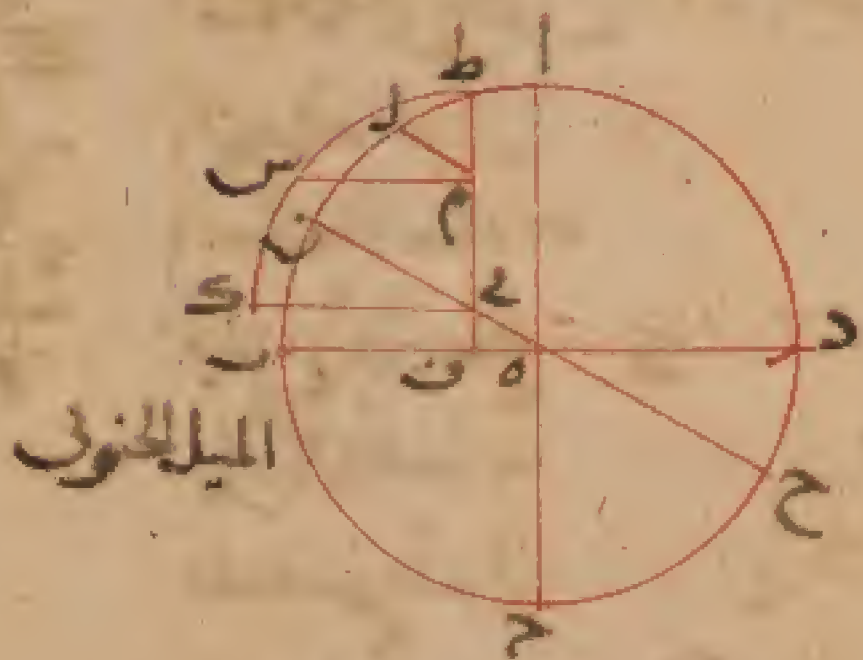 ا
ط
ل
س
م
ن
ك
ع
د
ب
ف
ه
الميل الجنوبى
ح
ج